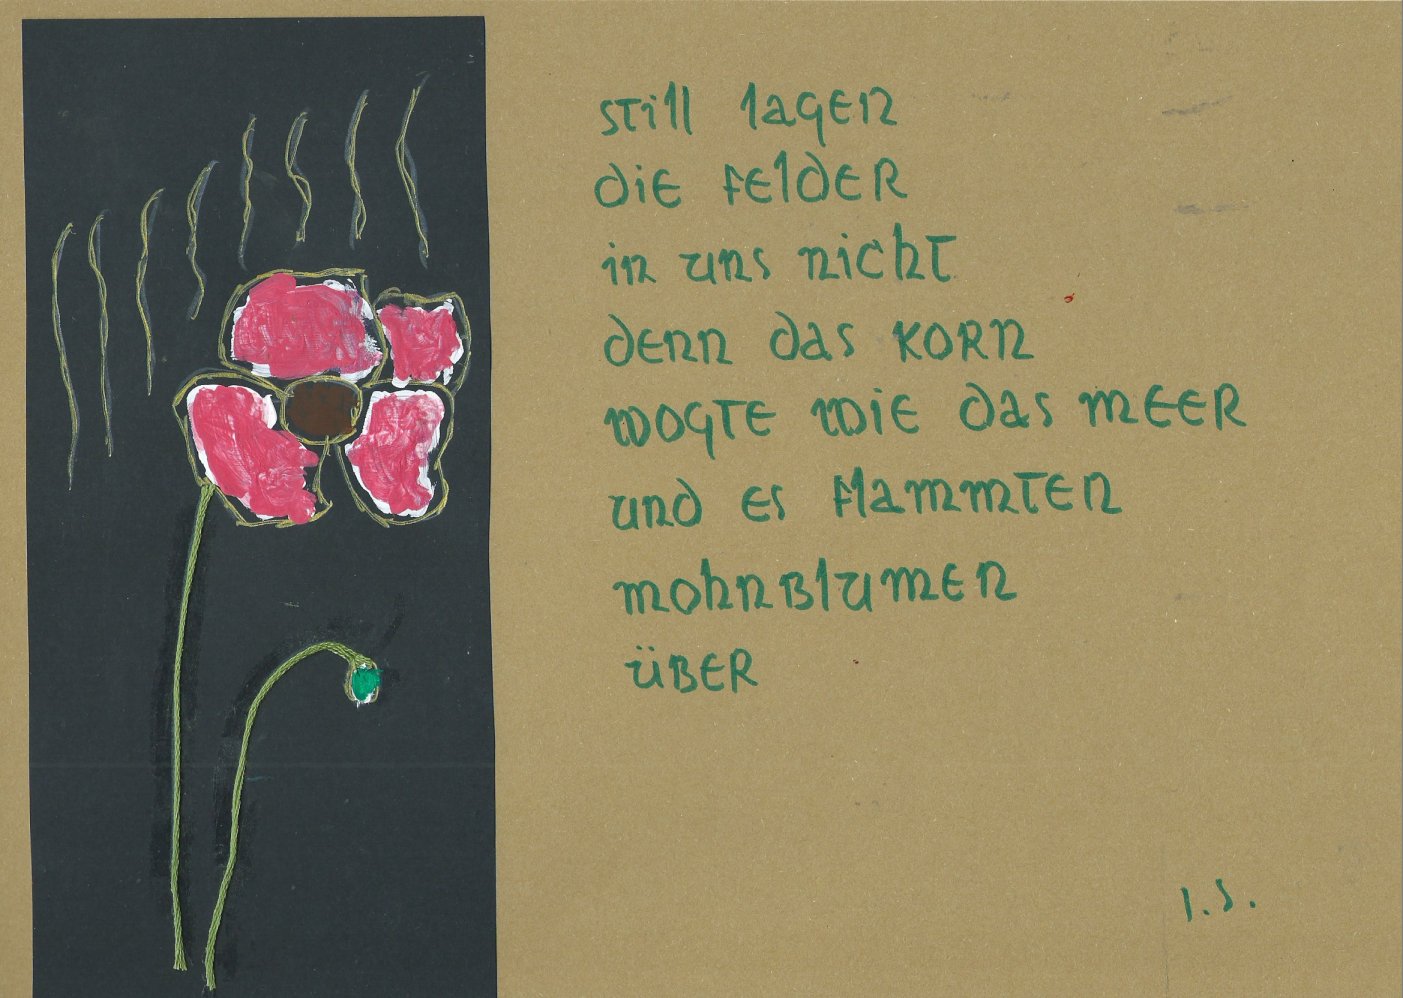 still lagen
die felder
in uns nicht
denn das korn
wogte wie das meer
und es flammten
mohnblumen
über
I.S.